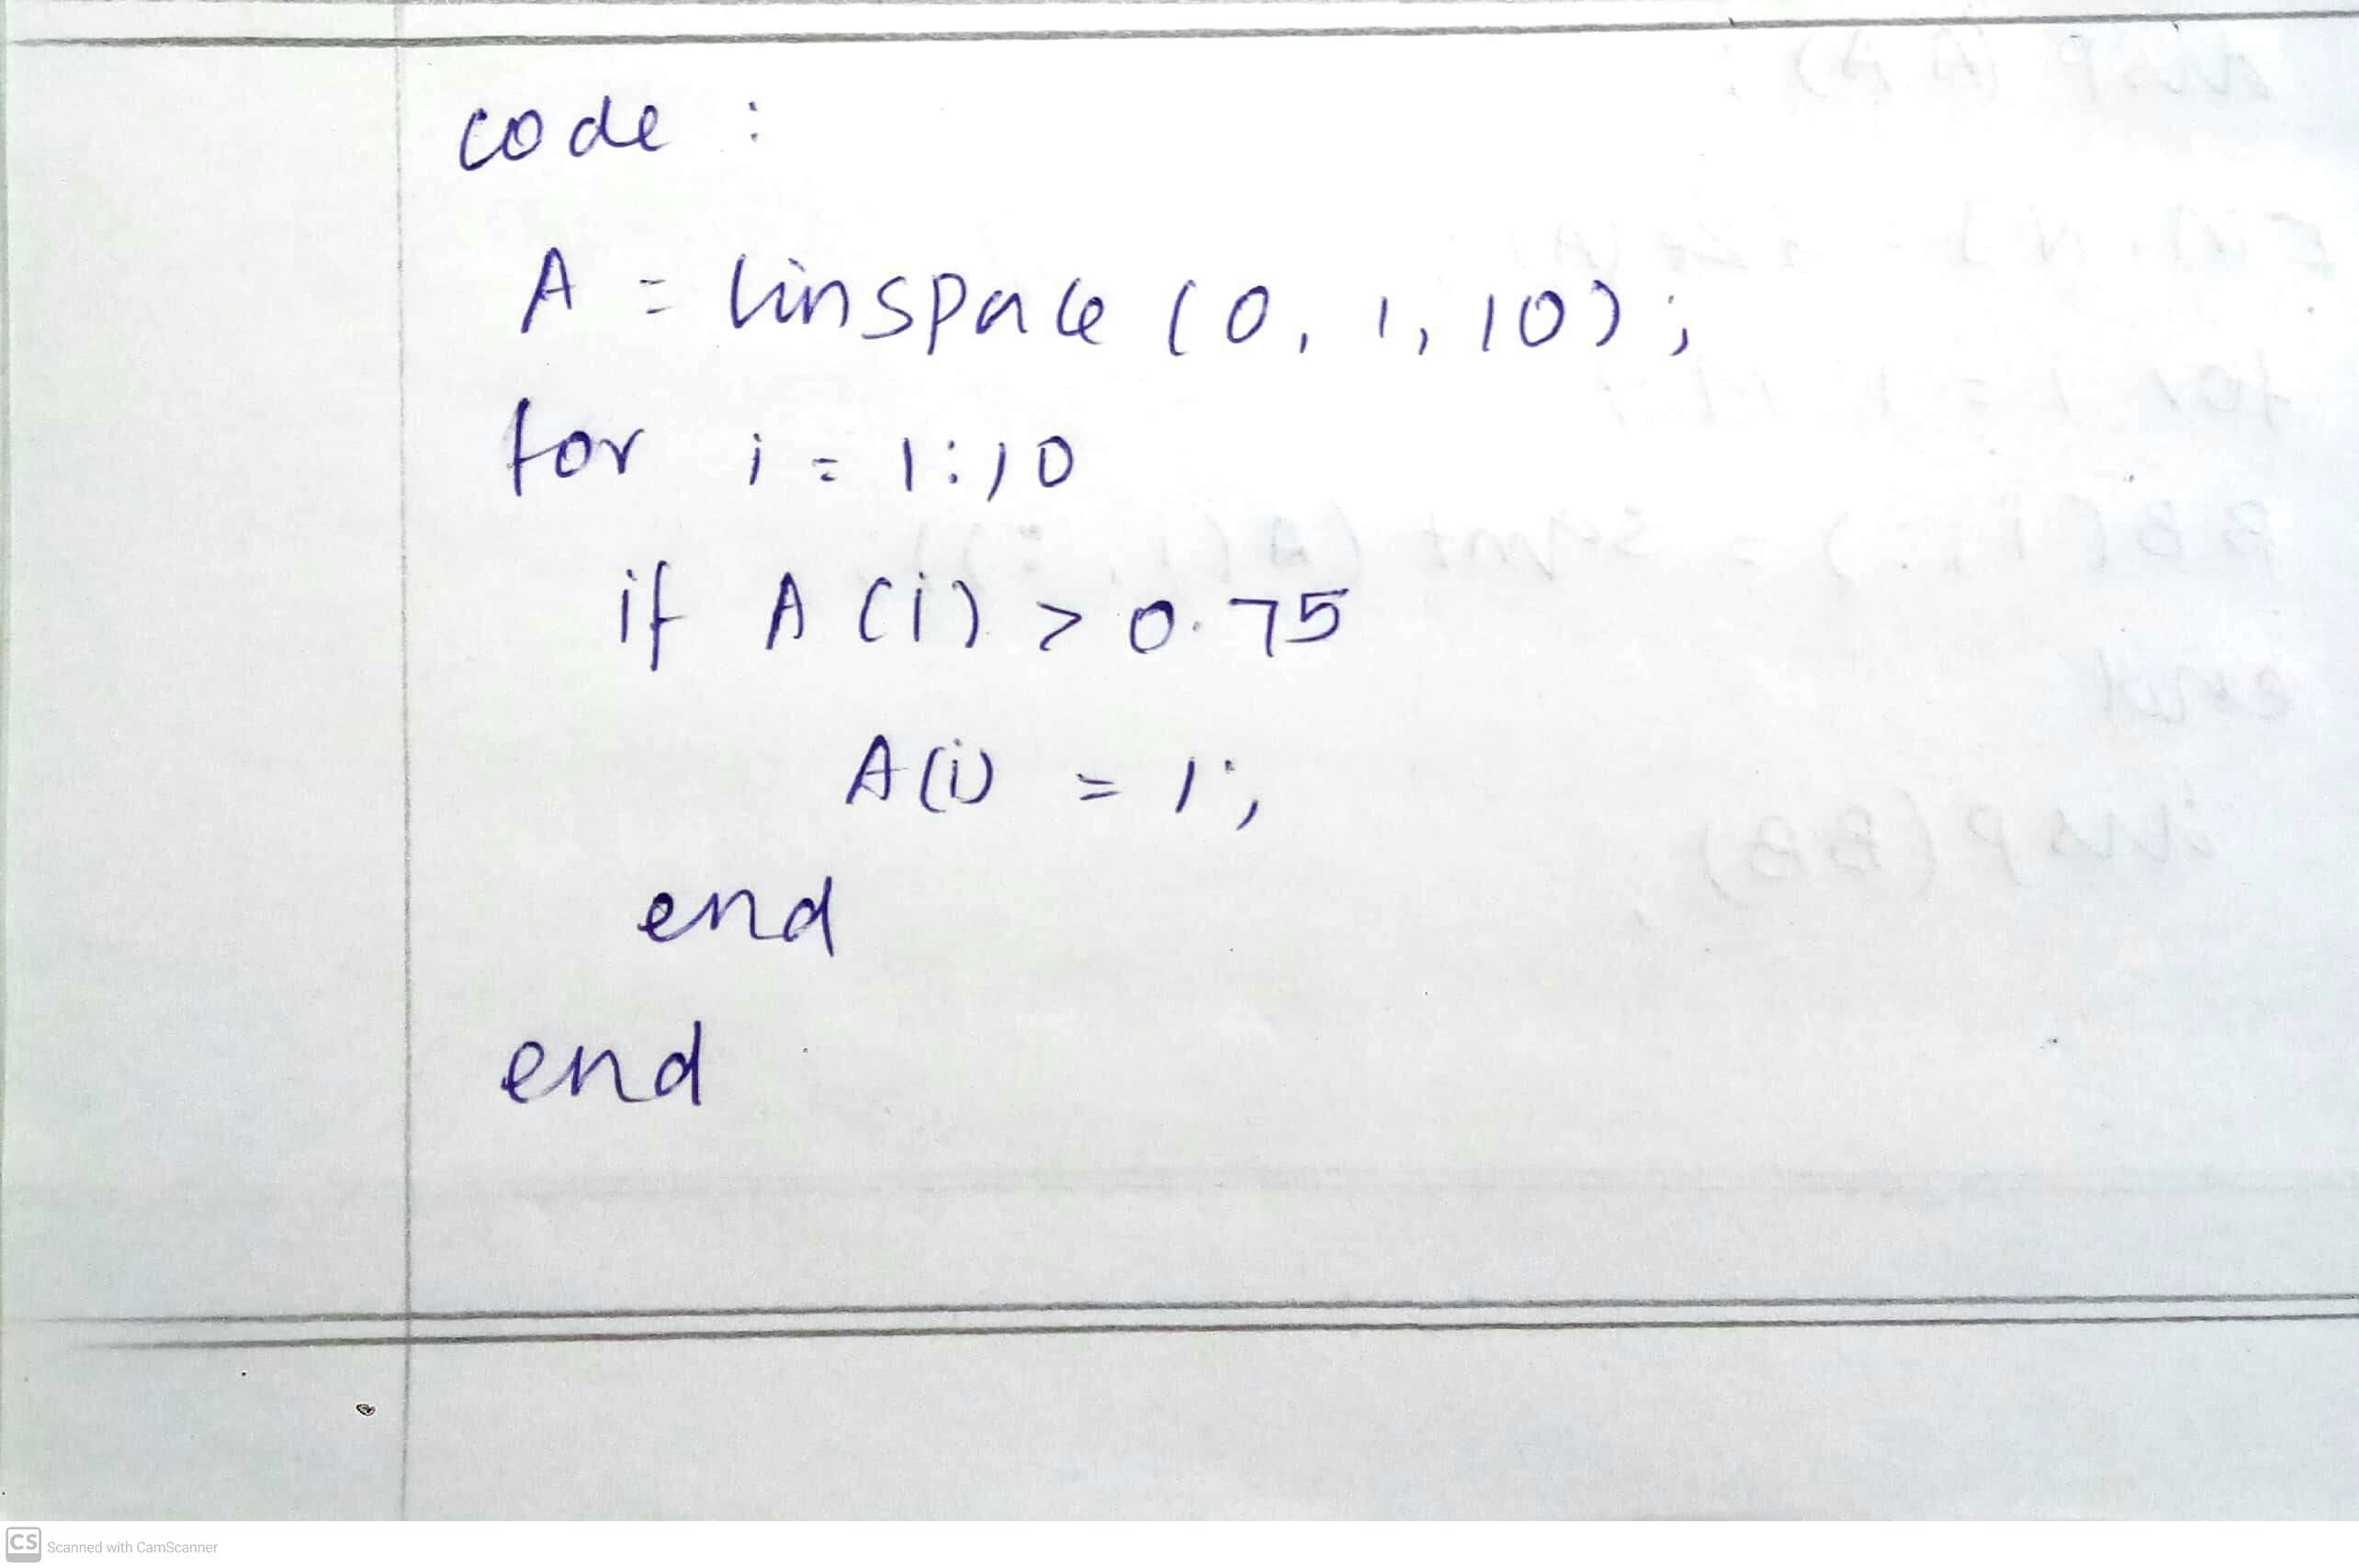 code :
A = linspace (0, 1, 10);
for i = 1:10
if A(i) > 0.75
A(i) = 1;
end
end
CS Scanned with CamScanner